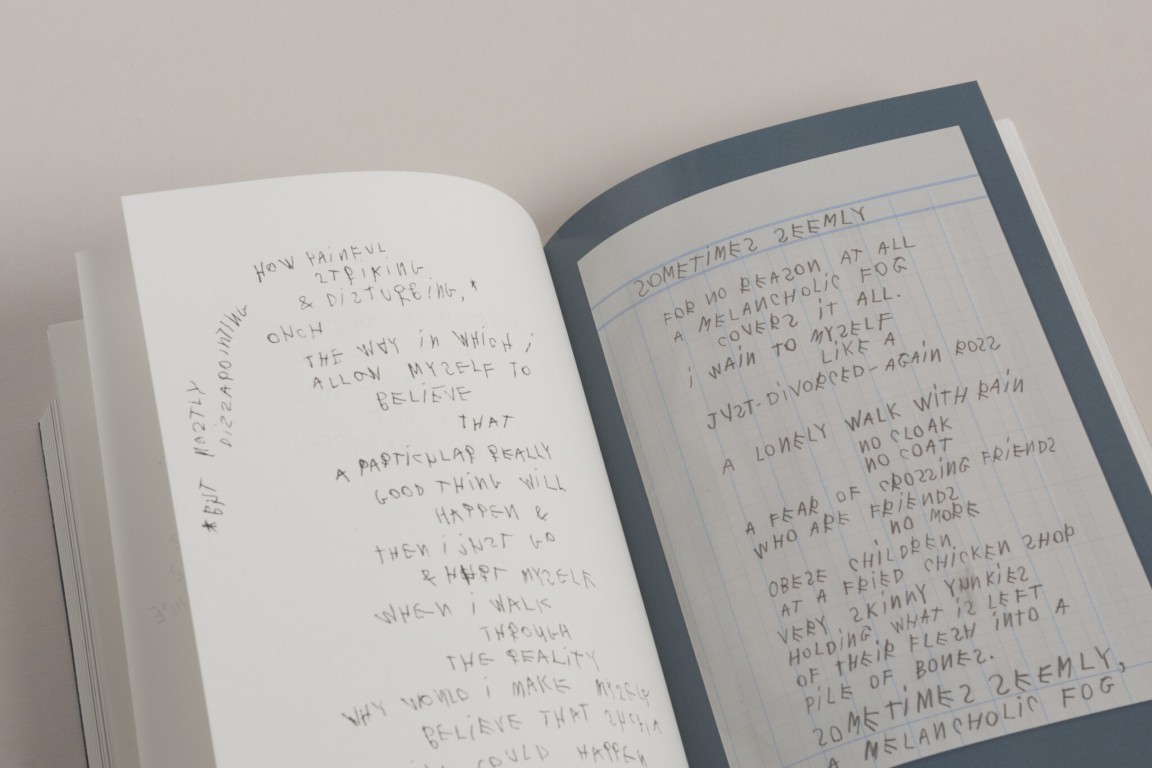 HOW PAINFUL
STRIKING
& DISTURBING,*
ONCH
THE WAY iN WHiCH i
ALLOW MYSELF TO
BELIEVE
THAT
A PARTICULAR REALLY
GOOD THING WiLL
HAPPEN &
THEN i JUST GO
& HURT MYSELF
WHEN i WALK
THROUGH
THE REALiTY
WHY WOULD i MAKE MYSELF
BELIEVE THAT
COULD HAPPEN
*BUT MOSTLY
DiSSAPOiNTiNG
SOMETiMES SEEMLY
FOR NO REASON AT ALL
A MELANCHOLiC FOG
COVERS iT ALL.
i WAiN TO MYSELF
LiKE A
JUST-DiVORCED-AGAiN ROSS
A LONELY WALK WiTH RAiN
NO CLOAK
NO COAT
A FEAR OF CROSSiNG FRiENDS
WHO ARE FRiENDS
NO MORE
OBESE CHiLDREN
AT A FRiED CHiCKEN SHOP
VERY SKiNNY YUNKiES
HOLDiNG WHAT iS LEFT
OF THEiR FLESH iNTO A
PiLE OF BONES.
SOMETiMES SEEMLY,
A MELANCHOLiC FOG